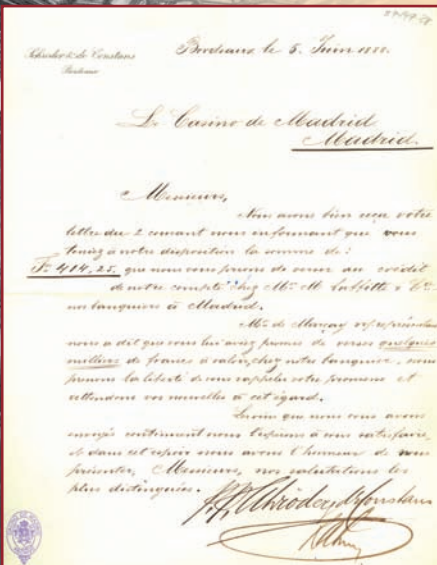 Schröder & de Constans
Bordeaux
Bordeaux le 5. Juin 1880.
Le Casino de Madrid
Madrid.
Messieurs,
Nous avons bien reçu votre
lettre du 2 courant nous informant que vous
teniez à notre disposition la somme de:
Fs 414,25. que nous vous prions de verser au crédit
de notre compte chez Mrs M. Laffitte & Cie
nos banquiers à Madrid.
Mr de
nous a dit que vous lui aviez promis de verser quelques
milliers de francs à valoir, chez notre banquier, nous
prenons la liberté de vous rappeler votre promesse et
attendons vos nouvelles à cet égard.
que nous vous avons
envoyés continuent nous l'espérons à vous satisfaire,
et dans cet espoir nous avons l'honneur de vous
présenter, Messieurs, nos salutations les
plus distinguées.
Schröder & de Constans